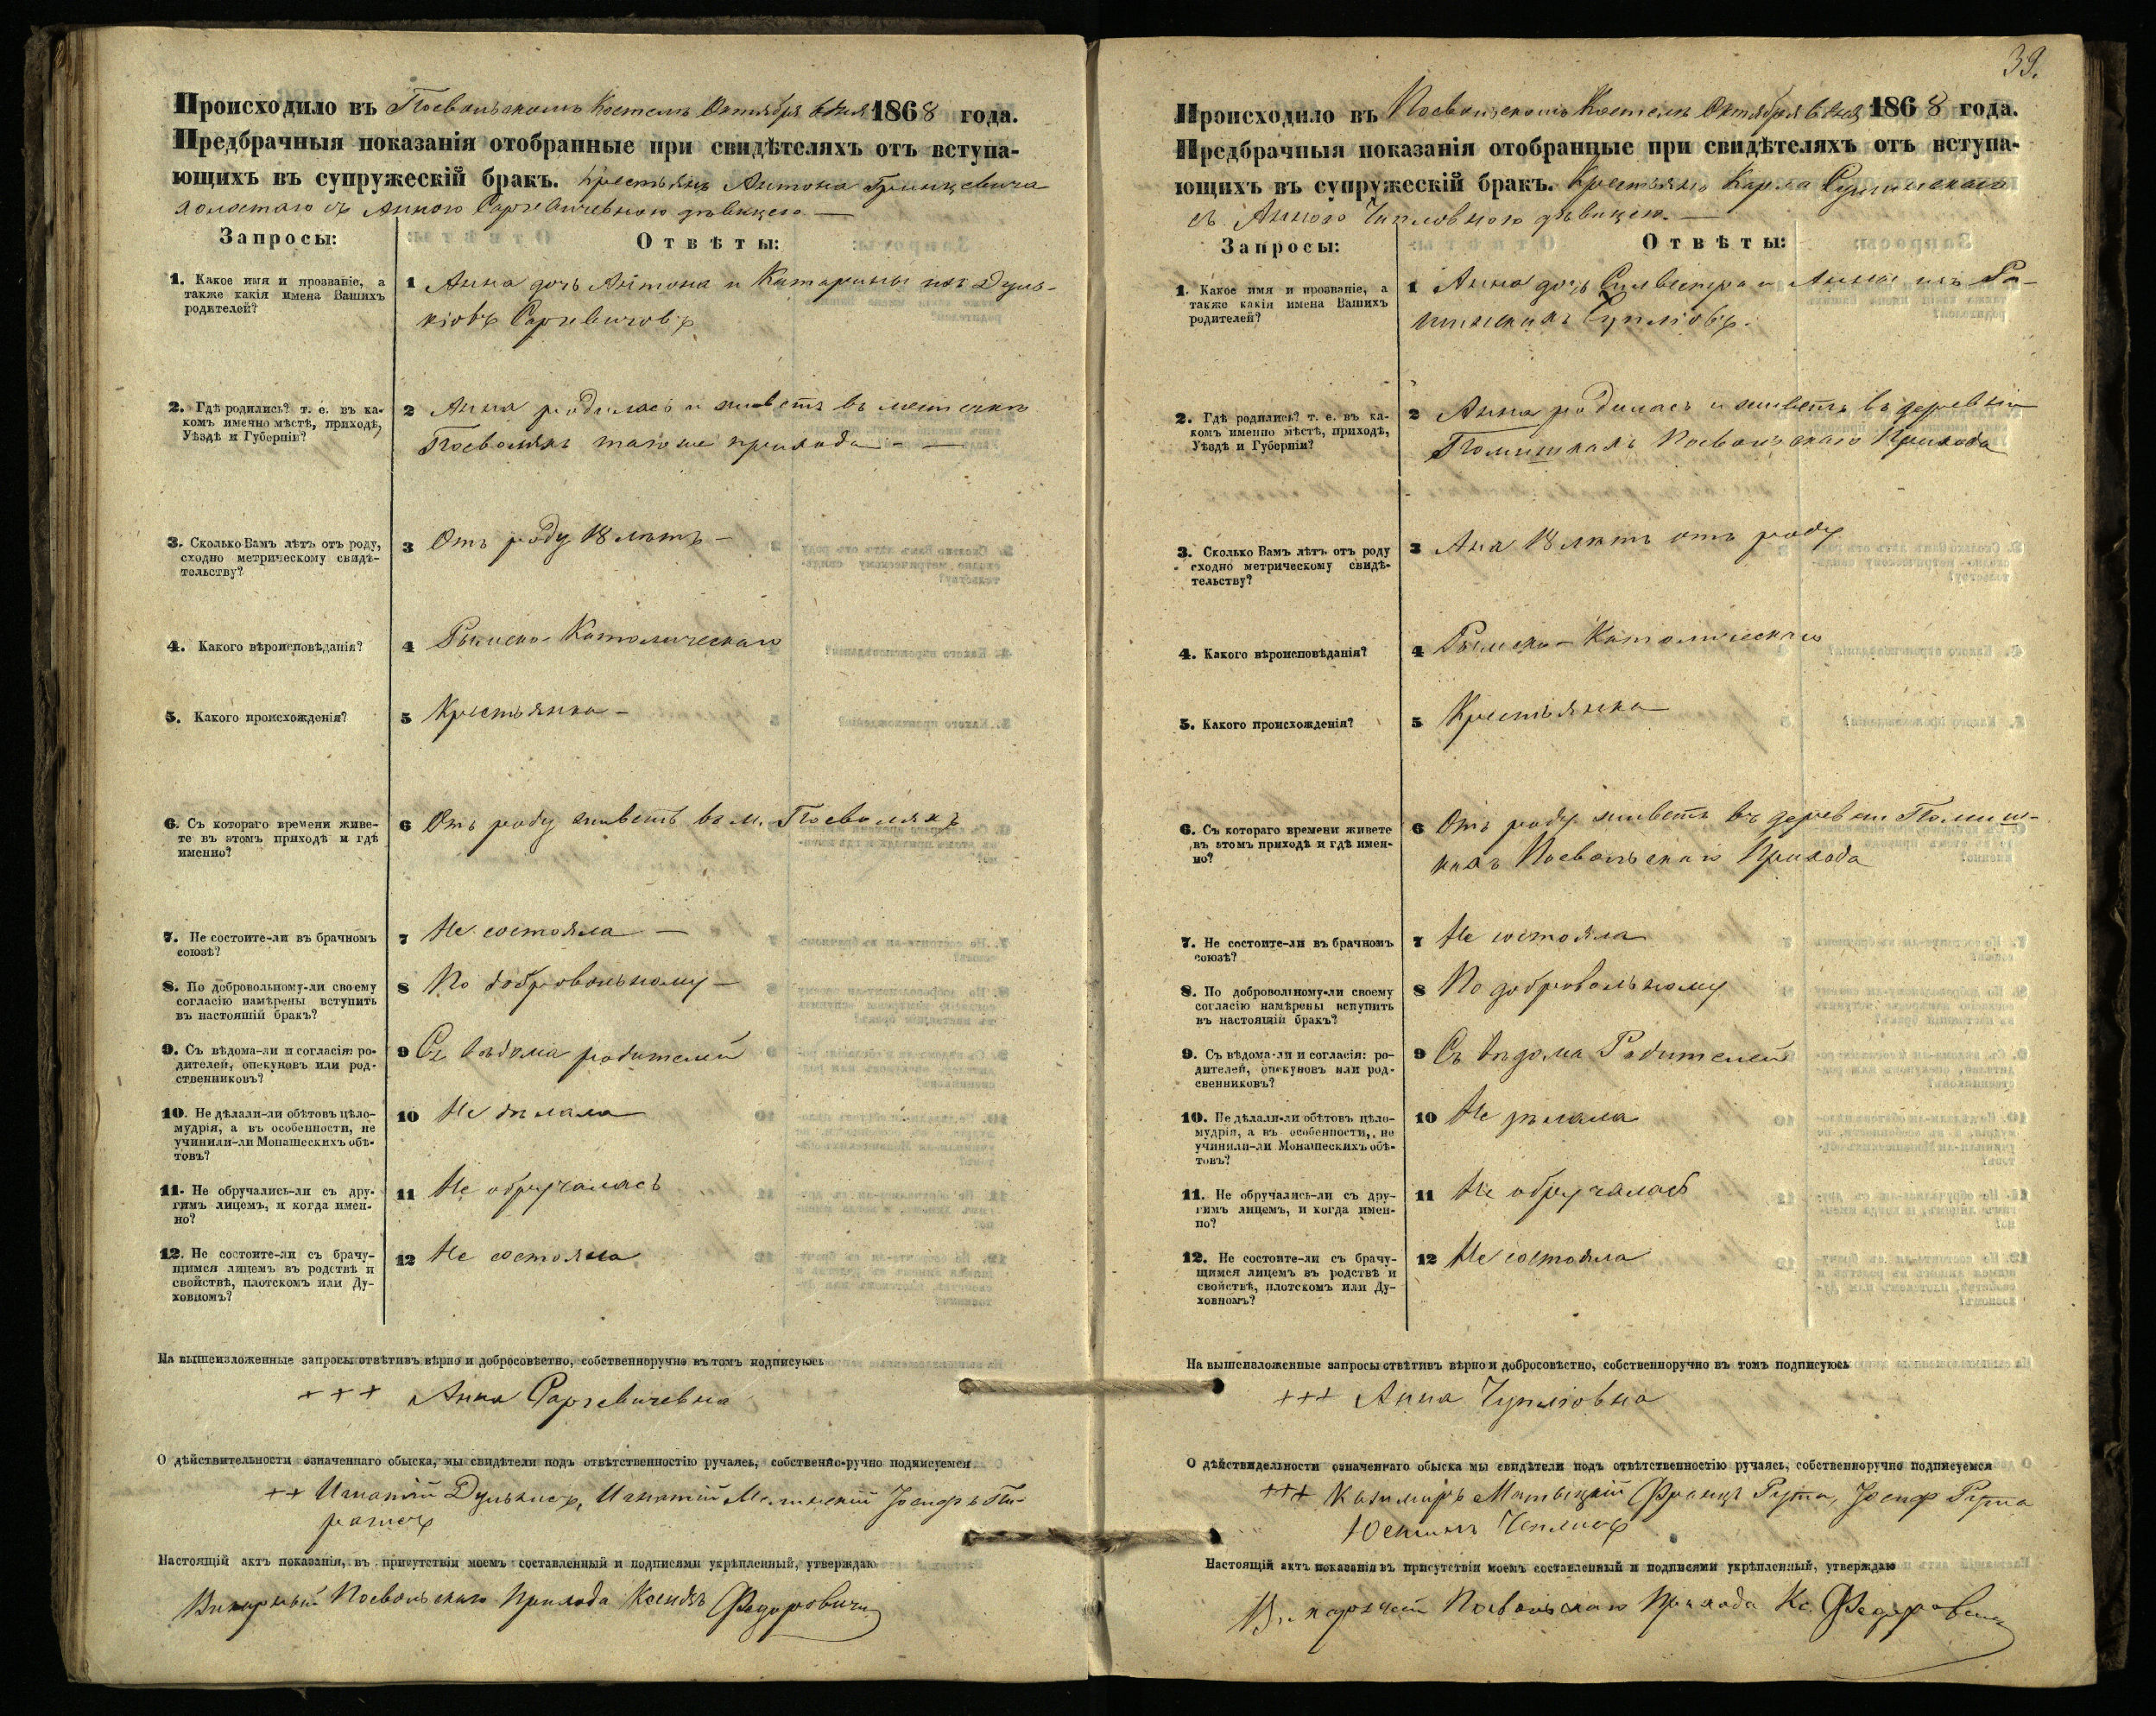 Происходило въ Посвольскомъ Костелѣ Октября 6 дня 1868 года.
Предбрачныя показанія отобранные при свидѣтеляхъ отъ вступа-
ющихъ въ супружескій бракъ. Крестьянъ Антона Гринцевича
холостаго съ Анною Саргевичевною дѣвицею —
Запросы: Отвѣты:
1. Какое имя и прозваніе, а
также какія имена Вашихъ
родителей?
1 Анна дочь Антона и Катарины изъ Дуль-
кіовъ Саргевичовъ
2. Гдѣ родились? т. е. въ ка-
комъ именно мѣстѣ, приходѣ,
Уѣздѣ и Губерніи?
2 Анна родилась и живетъ въ местечкѣ
Посволяхъ тогоже прихода — —
3. Сколько Вамъ лѣтъ отъ роду,
сходно метрическому свидѣ-
тельству?
3 Отъ роду 18 лѣтъ —
4. Какого вѣроисповѣданія?
4 Рымско-Католическаго
5. Какого происхожденія?
5 Крестьянка —
6. Съ котораго времени живе-
те въ этомъ приходѣ и гдѣ
именно?
6 Отъ роду живетъ въ м. Посволяхъ
7. Не состоите-ли въ брачномъ
союзѣ?
7 Не состояла —
8. По добровольному-ли своему
согласію намѣрены вступить
въ настоящій бракъ?
8 По добровольному —
9. Съ вѣдома-ли и согласія: ро-
дителей, опекуновъ или род-
ственниковъ?
9 Съ вѣдома родителей
10. Не дѣлали-ли обѣтовъ цѣло-
мудрія, а въ особенности, не
учинили-ли Монашескихъ обѣ-
товъ?
10 Не дѣлала
11. Не обручались-ли съ дру-
гимъ лицемъ, и когда имен-
но?
11 Не обручалась
12. Не состоите-ли съ брачу-
щимся лицемъ въ родствѣ и
свойствѣ, плотскомъ или Ду-
ховномъ?
12 Не состояла
На вышеизложенные запросы отвѣтивъ вѣрно и добросовѣстно, собственноручно въ томъ подписуюсь
+++ Анна Саргевичевна
О дѣйствительности означеннаго обыска, мы свидѣтели подъ отвѣтственностію ручаясь, собственно-ручно подписуемся
++ Игнатій Дулькисъ, Игнатій Іосифъ
Настоящій актъ показанія, въ присутствіи моемъ составленный и подписями укрѣпленный, утверждаю
Викарный Посвольскаго Прихода Ксендзъ Федоровичъ
39.
Происходило въ Посвольскомъ Костелѣ Октября 6 дня 1868 года.
Предбрачныя показанія отобранные при свидѣтеляхъ отъ вступа-
ющихъ въ супружескій бракъ. Крестьянъ Карла
съ Анною дѣвицею. —
Запросы: Отвѣты:
1. Какое имя и прозваніе, а
также какія имена Вашихъ
родителей?
1 Анна дочь Сильвестра и Анны изъ
2. Гдѣ родились? т. е. въ ка-
комъ именно мѣстѣ, приходѣ,
Уѣздѣ и Губерніи?
2 Анна родилась и живетъ въ деревнѣ
Помишкахъ Посвольскаго Прихода
3. Сколько Вамъ лѣтъ отъ роду
сходно метрическому свидѣ-
тельству?
3 Ана 18 лѣтъ отъ роду
4. Какого вѣроисповѣданія?
4 Рымско-Католическаго
5. Какого происхожденія?
5 Крестьянка
6. Съ котораго времени живете
въ этомъ приходѣ и гдѣ имен-
но?
6 Отъ роду живетъ въ деревни Помиш-
кахъ Посвольскаго Прихода
7. Не состоите-ли въ брачномъ
союзѣ?
7 Не состояла
8. По добровольному-ли своему
согласію намѣрены вспупить
въ настоящій бракъ?
8 По добровольному
9. Съ вѣдома-ли и согласія: ро-
дителей, опекуновъ или род-
свенниковъ?
9 Съ вѣдома Родителей
10. Не дѣлали-ли обѣтовъ цѣло-
мудрія, а въ особенности, не
учинили-ли Монашескихъ обѣ-
товъ?
10 Не дѣлала
11. Не обручались-ли съ дру-
гимъ лицемъ, и когда имен-
но?
11 Не обручалась
12. Не состоите-ли съ брачу-
щимся лицемъ въ родствѣ и
свойствѣ, плотскомъ или Ду-
ховномъ?
12 Не состояла
На вышеизложенные запросы отвѣтивъ вѣрно и добросовѣстно, собственноручно въ томъ подписуюсь
+++ Анна Чуплiовна
О дѣйствидельности означеннаго обыска мы свидѣтели подъ отвѣтственностію ручаясь, собственноручно подписуемся
+++ Казимиръ Францъ Рута, Іосифъ Рута
Настоящій актъ показанія въ присутствіи моемъ составленный и подписями укрѣпленный, утверждаю
Викарный Посвольскаго Прихода Кс. Федоровичъ